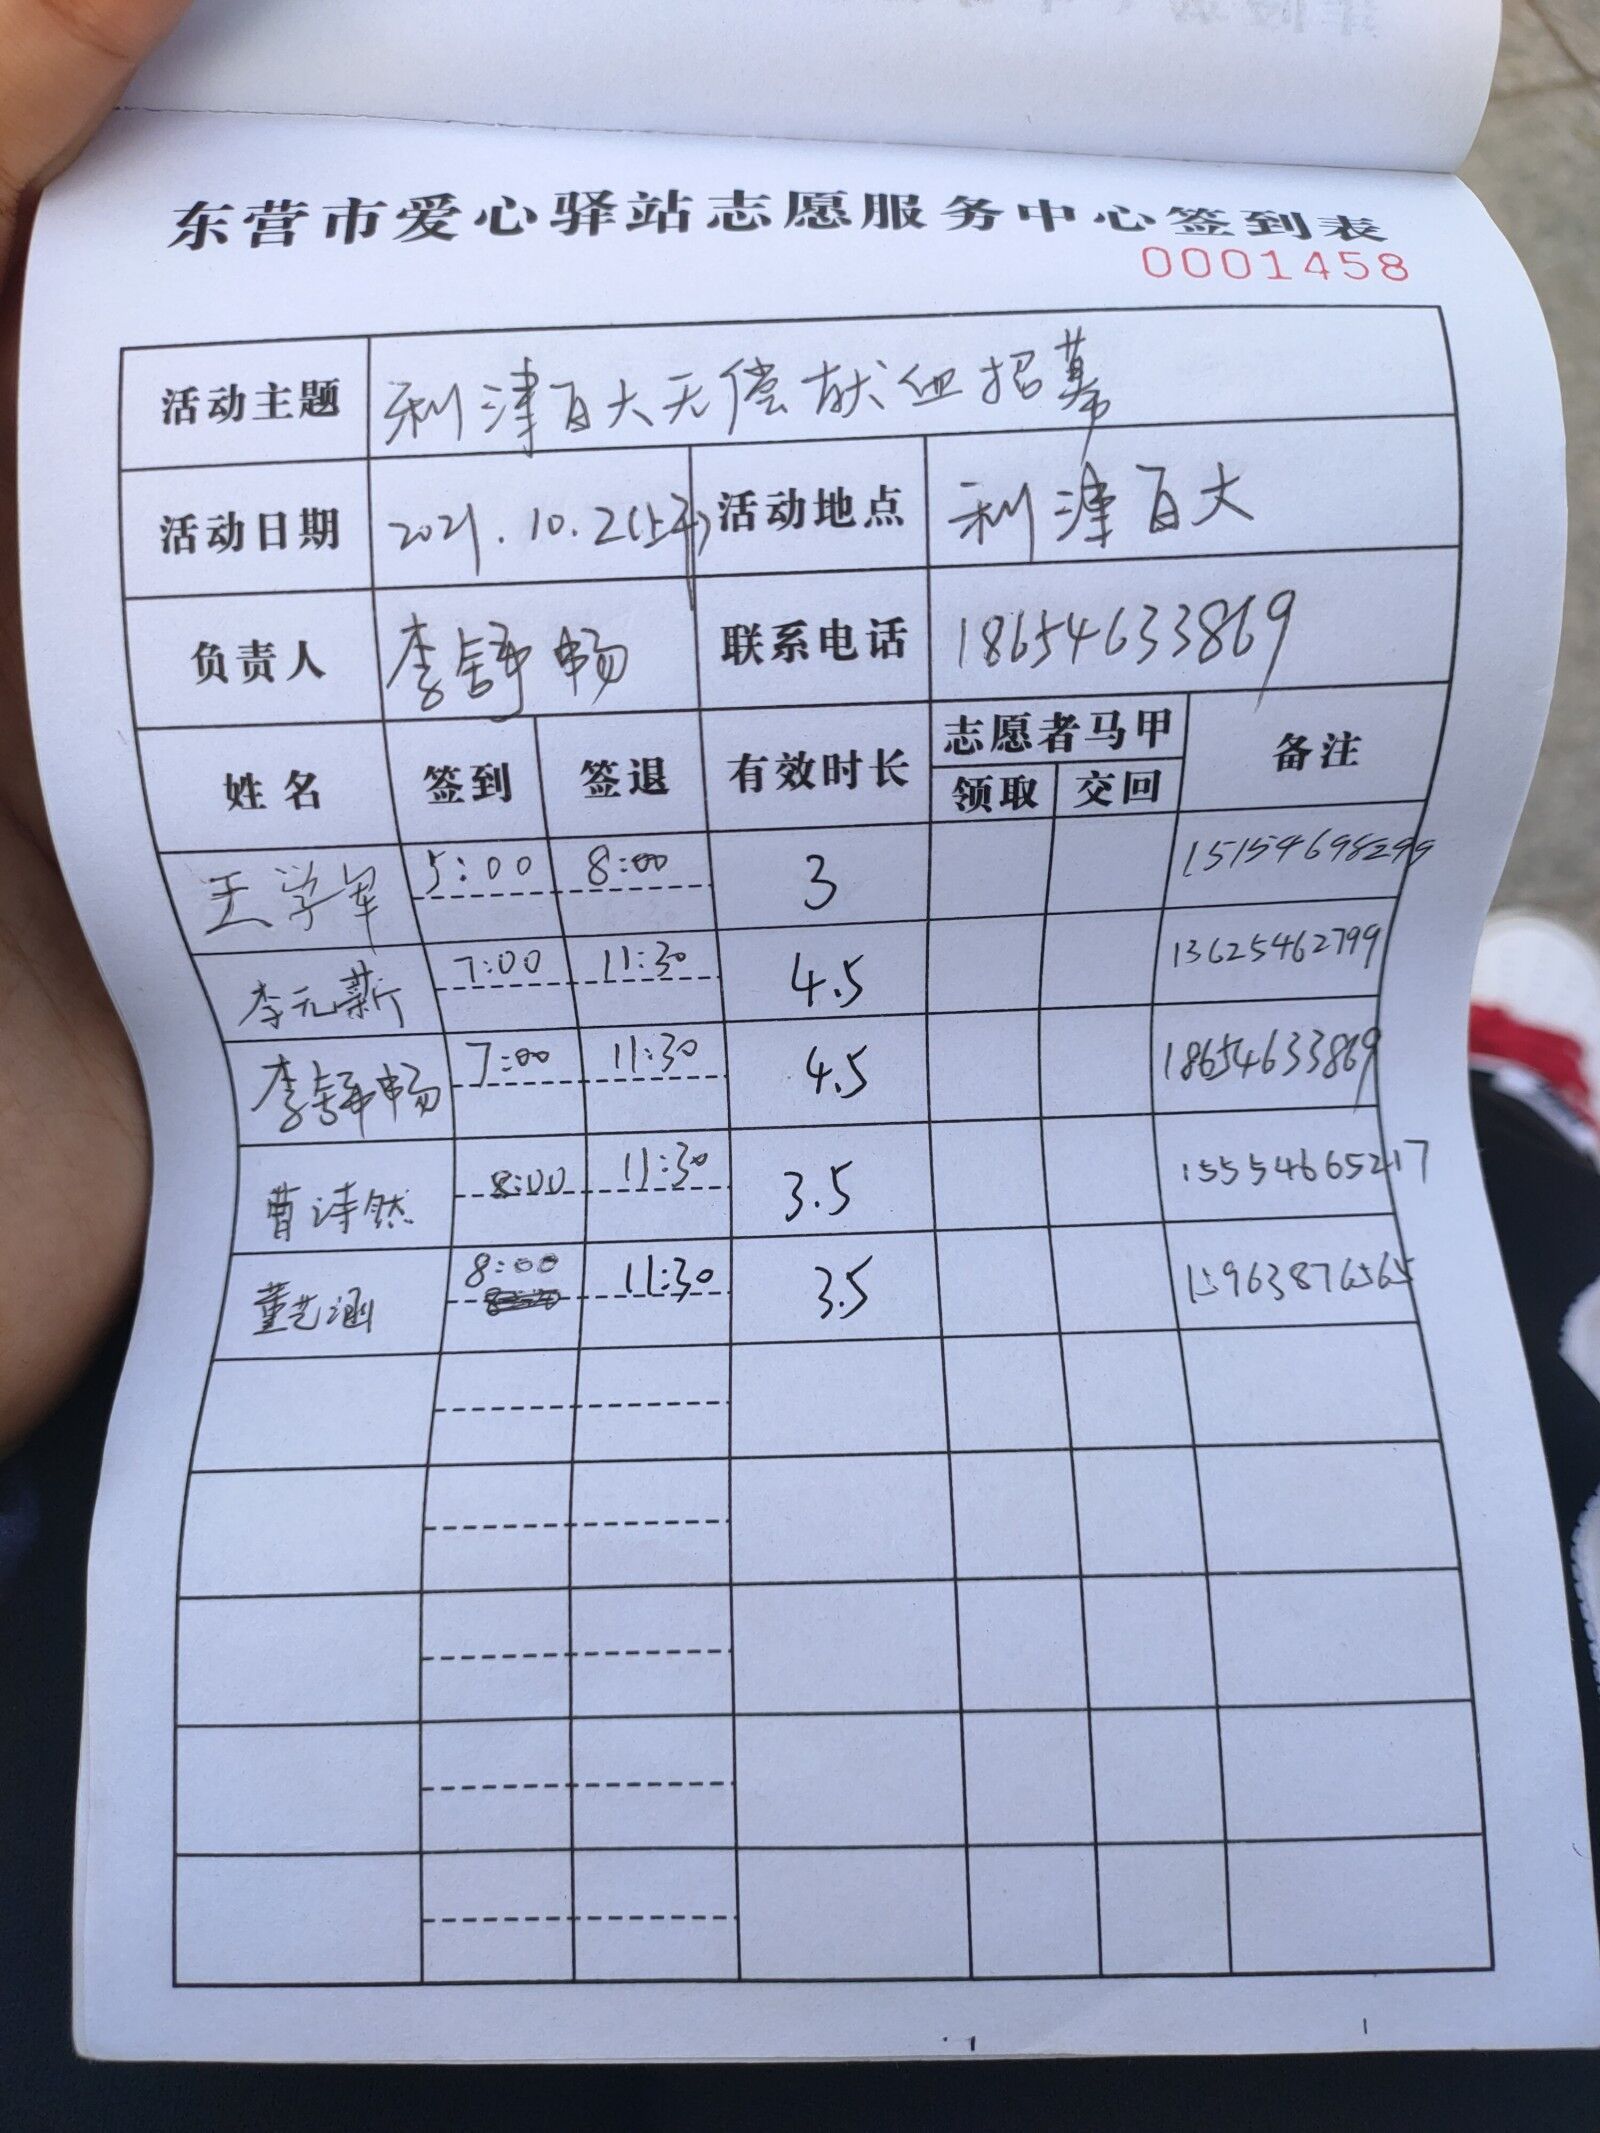 东营市爱心驿站志愿服务中心签到表
0001458
活动主题 利津百大无偿献血招募
活动日期 2021.10.2(上午) 活动地点 利津百大
负责人 李舒畅 联系电话 18654633869
姓名 签到 签退 有效时长 志愿者马甲 备注
领取 交回
王学军 5:00 8:00 3 15154698299
李元新 7:00 11:30 4.5 13625462799
李舒畅 7:00 11:30 4.5 18654633869
曹诗然 8:00 11:30 3.5 15554665217
董艺涵 8:00 11:30 3.5 15963876565